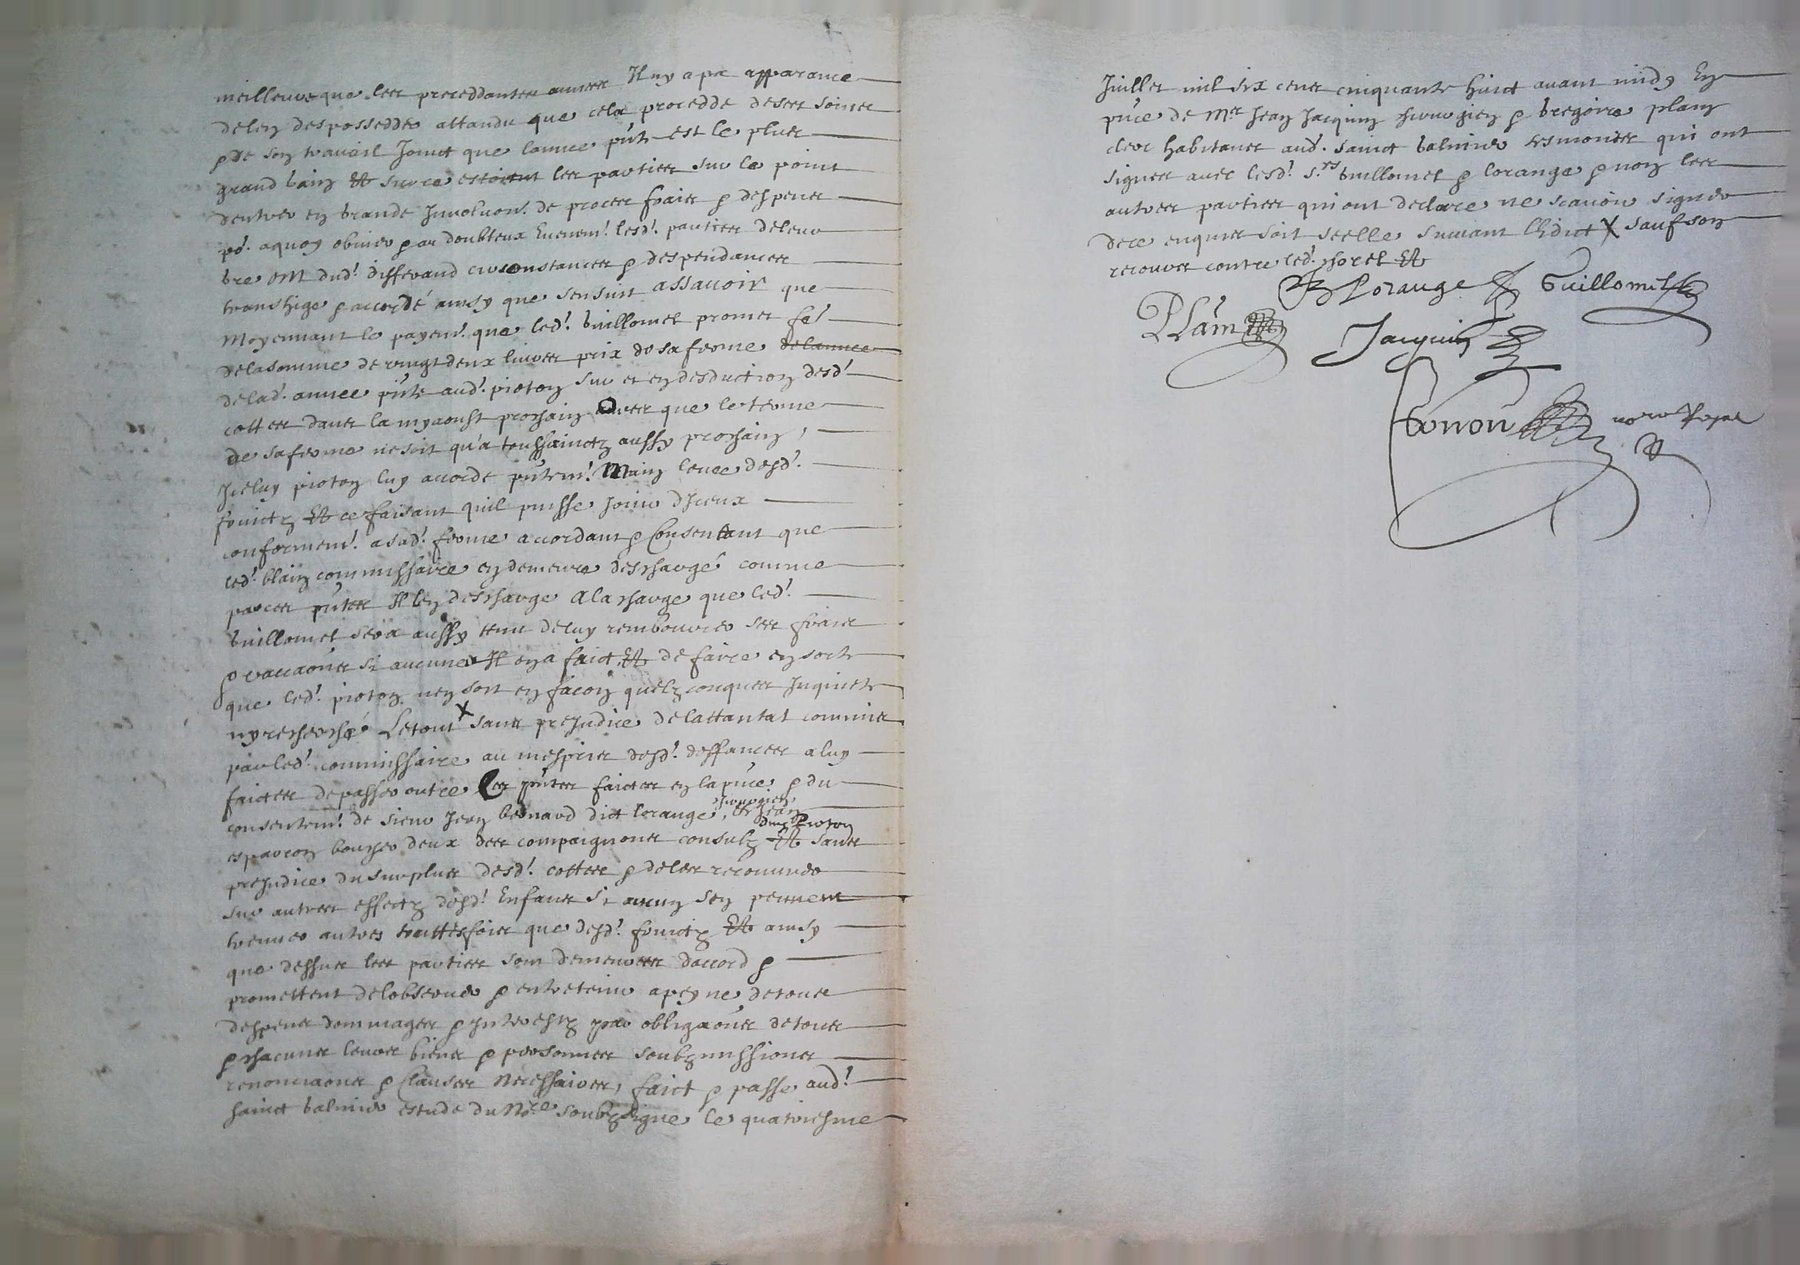 meilleure que les preceddantes annees Il ny a pas apparance
de len desposseddes attandu que cela procedde de ses soins
& de son travail Joinct que lannee pnte est le plus
grand bain Et sur ce estoient les parties sur le point
dentrer en grande Involuon de proces frais & despens
po.r aquoy obvier & au doubteux Evenem.t lesd.t parties de leur
bre ont dud.t differand circonstances & despendances
transhige & accordé ainsy que sensuit assavoir que
Moyennant le payem.t que led.t Guillomet promet fe.e
de la somme de vingt deux livres prix de sa ferme de lannee
de lad.t annee pnte aud.t pioton sur et en desduction desd.t
cottes dans la myaoust prochain Ores que le terme
de sa ferme ne soit qu'a toussainctz aussy prochain,
Iceluy pioton luy accorde pntem.t Main levee desd.t
fruictz Et ce faisant quil puisse Jouir diceux
conformem.t a sad.t ferme accordant & Consentant que
led.t blain commissaire en demeure descharge comme
par ces pntes Il len descharge A la charge que led.t
Guillomet sera aussy tenu de luy rembourcer ses frais
& vaccaons si aucunes Il en a faict Et de faire en sorte
que led.t pioton nen soit en facon quelzconques Inquieté
ny recherché Le tout X sans prejudice de lattantat commis
par led.t commissaire au mespris desd.t deffances a luy
faictes de passer outre Les pntes faictes en la pnce & du
consentem.t de sieur Jean Bernard dict lorange, chirurgien, et Jean
esparcon boucher deux des compaignons consulz dud Pioton Et sans
prejudice du surplus desd.t cottes & de les recouvrer
sur autres effectz desd.t Enfans si aucun sen peuvent
trouver autres touttesfois que desd.t fruictz Et ainsy
que dessus les parties sont demeurees daccord &
promettent de lobserver & entretenir a peyne de tous
despens dommages & interestz par obligaons de tous
& chacuns leurs biens & personnes soubzmissions
renonciaons & Clauses Necessaires, faict & passe aud.t
sainct balmier estude du No.re soubzsigne le quatriesme
Juillet mil six cens cinquante huict avant midy En
pnce de M.re Jean Jacquin chirurgien & Gregoire plain
clerc habitans aud.t sainct balmier tesmoins qui ont
signes avec lesd.t s.rs Guillomet & lorange & non les
autres parties qui ont declare ne scavoir signer
de ce enquis soit scelle suivant lEdict X sauf son
recouvre contre led.t Et
B Lorange Guillomet
PLain Jacquin
no.re Royal